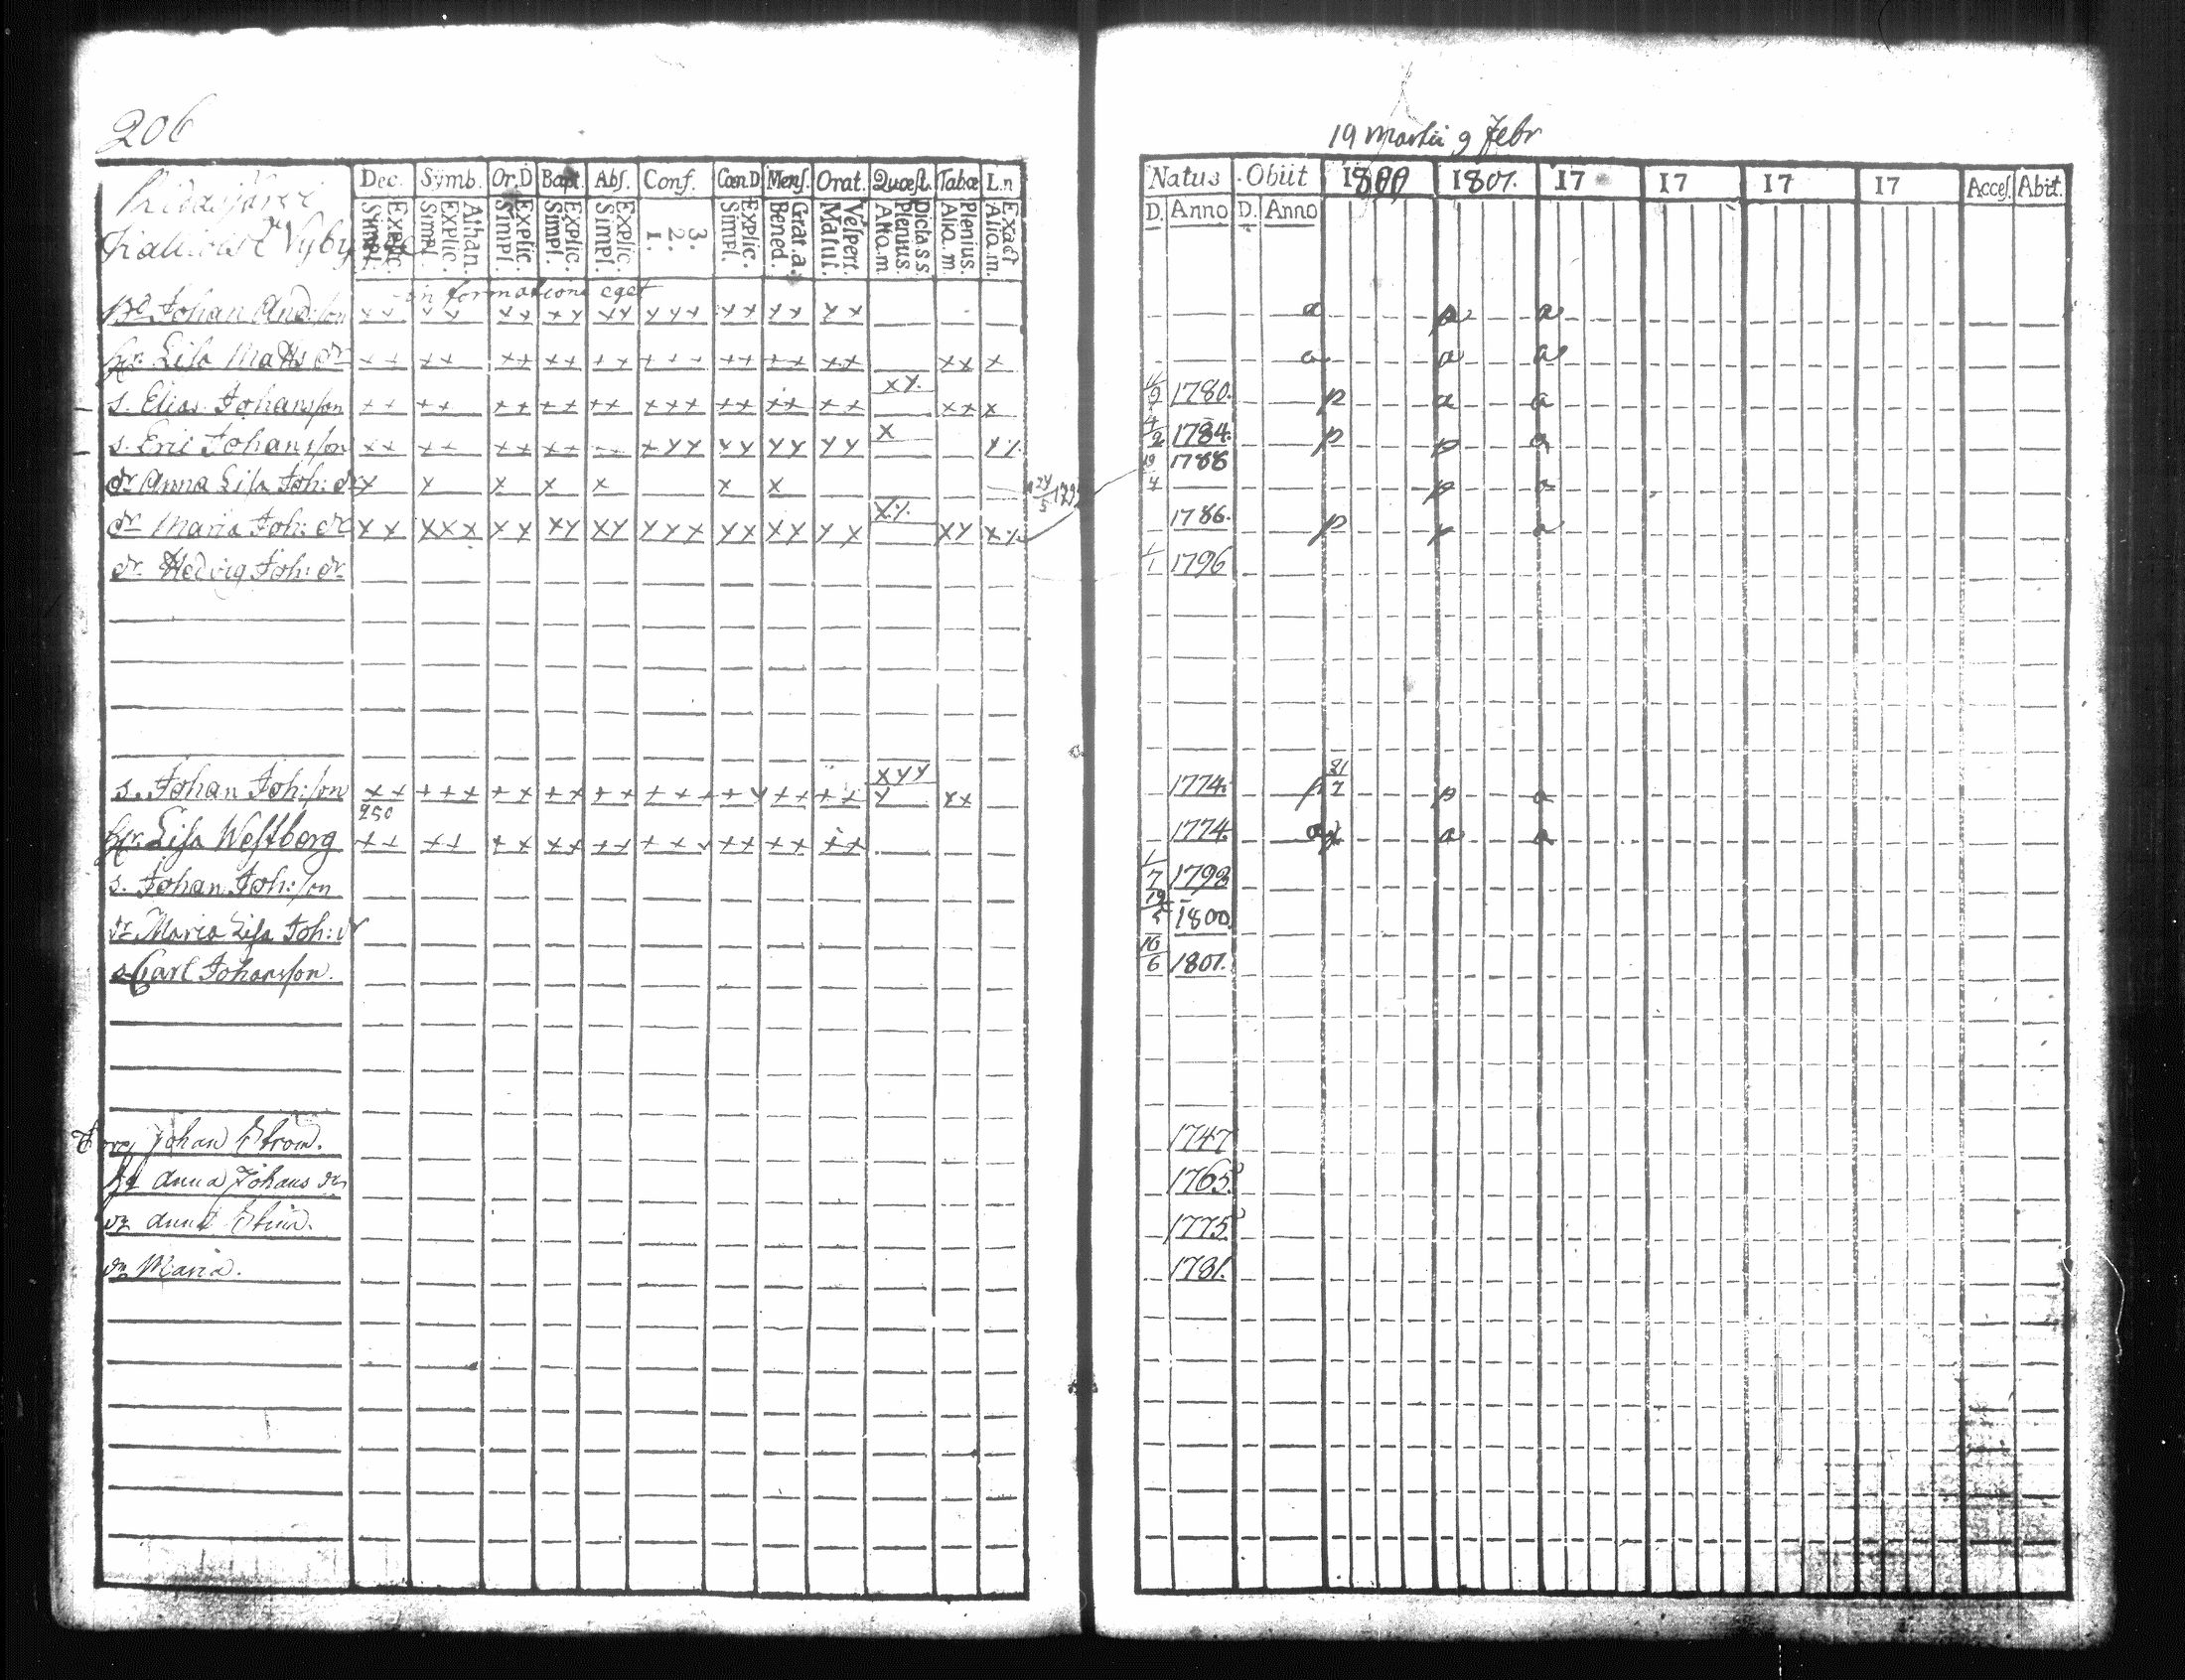 206
19 Martii 9 Febr
Dec. Symb. Or.D Bapt. Abſ. Conf. Cœn.D Menſ. Orat. Quæſt. Tabœ L.n
Natus Obiit 1800 1801. 17 17 17 17 Acceſ. Abiit.
Explic. Simpl. Athan. Explic. Simpl. Explic. Simpl. Explic. Simpl. Explic. Simpl. 3. 2. 1. Explic. Simpl. Grat. a. Bened. Veſpert. Matut. Dicta s s. Plenius. Alia.m. Plenius. Alia.m. Exact Alia.m.
D. Anno D. Anno
in formatione eget
Johan And:ſon x x x x x x x y x y y y y x y y y y y a p a
hr. Liſa Matts dr x x x x x x x x x x x x x x x x x x x x x x a a a
s. Elias Johansſon x x x x x x x x x x x x x x x x x x x x y. x x x 1780. p a a
s. Eric Johansſon 4/2 1784. p p a
dr Anna Liſa Joh: dr x x x x x x x 1788 p a
dr Maria Joh: dr x x x x x x x x y x y y y x y x x y y x x y 1786. p p a
dr Hedvig Joh: dr 1/1 1796
s. Johan Joh:ſon 1774. p a
250
hr. Liſa Weſtberg 1774. a a a
s. Johan Joh:ſon 1/7 1798
dr Maria Liſa Joh: dr 1800.
s Carl Johansſon. 10/6 1801.
Johan Ström. 1747
Anna Johans dr 1765.
dr Anna Stina. 1775.
dr Maria. 1781.